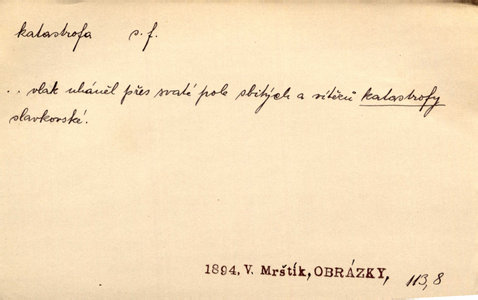 katastrofa s. f.
.. vlak uháněl přes svaté pole sbitých a vítězů katastrofy
slavkovské.
1894, V. Mrštík, OBRÁZKY, 113,8